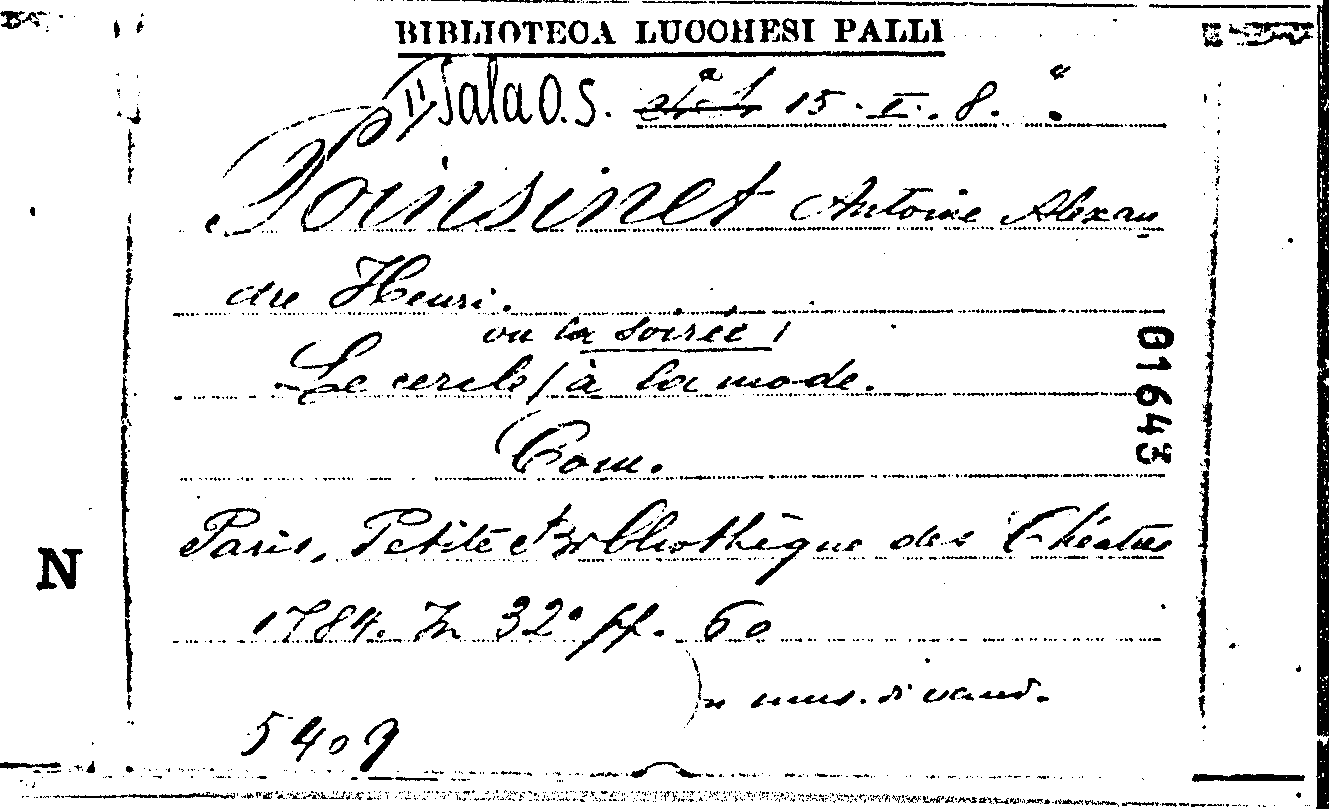 BIBLIOTECA LUCCHESI PALLI
Sala O.S. 15. I. 8. "
Poinsinet Antoine Alexan
dre Henri.
ou la soirée
Le cercle / à la mode.
Com.
Paris, Petite Bibliothèque des Théatres
1784. In 32° pp. 60
5409
01643
N